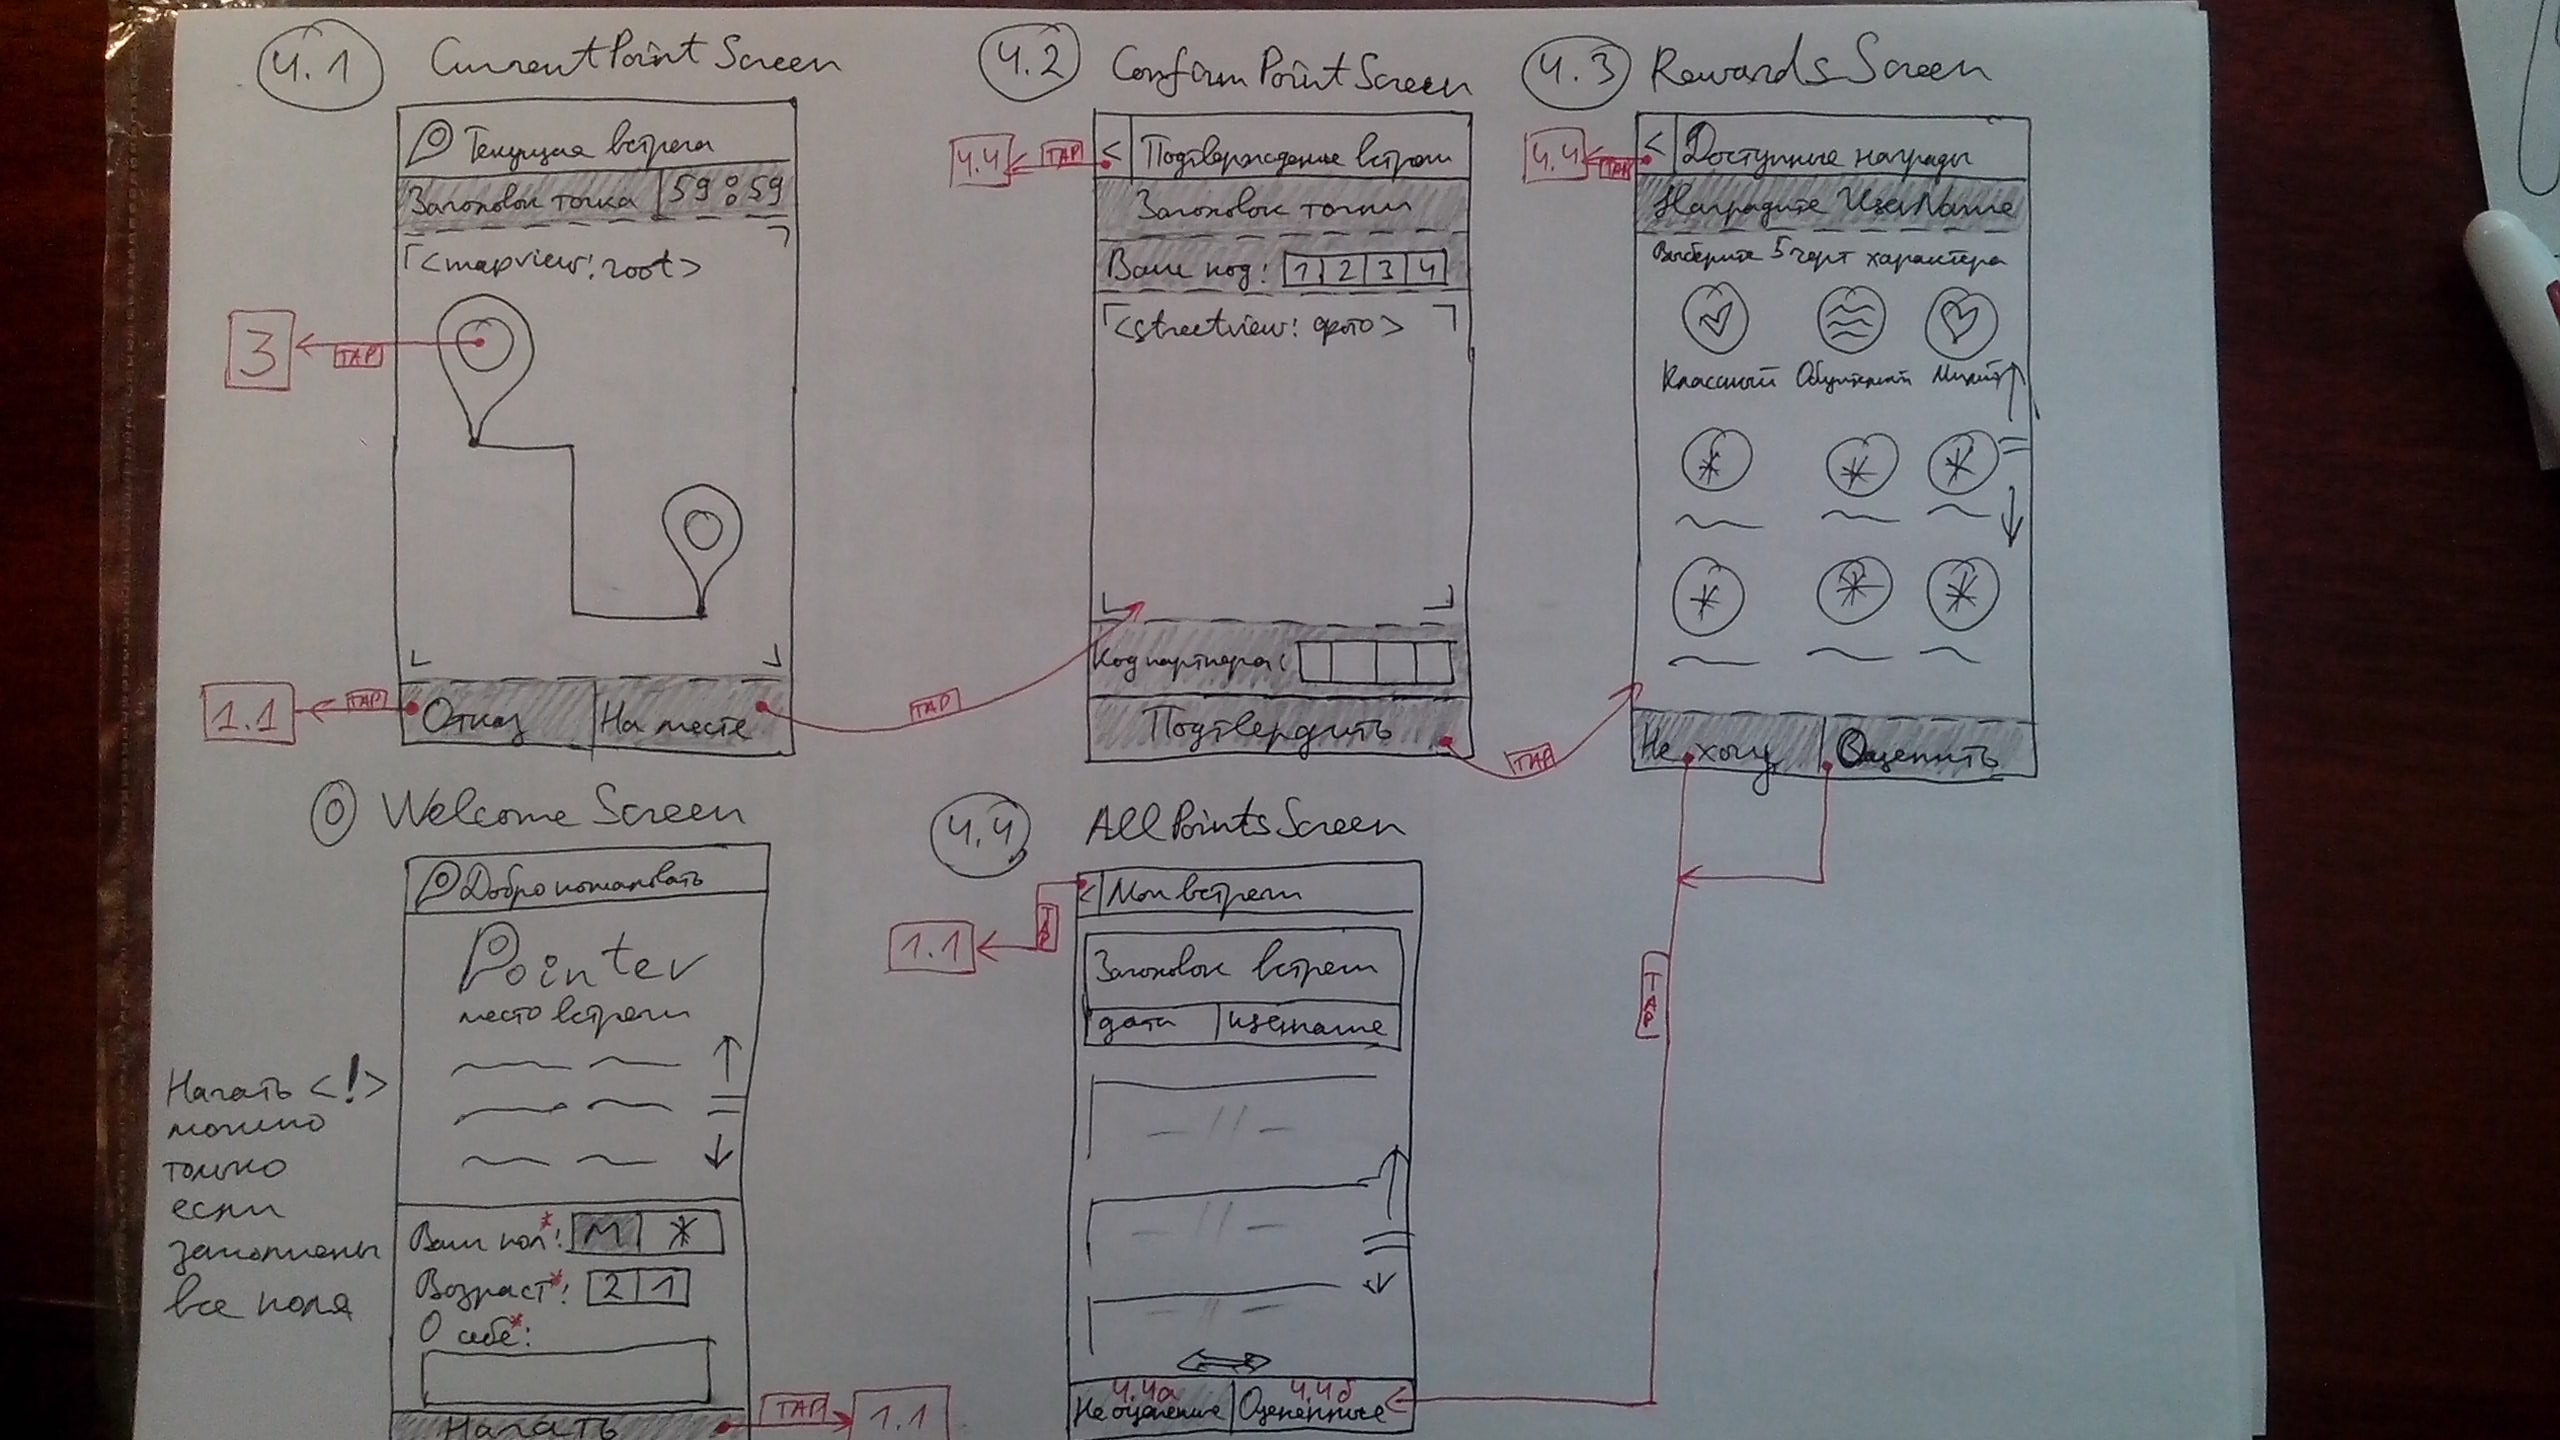 4.1 CurrentPointScreen
Текущая встреча
Заголовок точка 59:59
<mapview: root>
3 TAP
1.1 TAP
Отказ На месте
TAP
4.2 ConfirmPointScreen
4.4 TAP < Подтверждение встречи
Заголовок точки
Ваш код: 1 2 3 4
<streetview: фото>
Код партнера:
Подтвердить
TAP
4.3 RewardsScreen
4.4 TAP < Доступные награды
Наградите UserName
Выберите 5 черт характера
Классный Милый
Не хочу Оценить
TAP
0 WelcomeScreen
Добро пожаловать
Pointer
место встречи
Ваш пол*: М Ж
Возраст*: 2 1
О себе*:
Начать TAP 1.1
Начать <!>
можно
только
если
заполнены
все поля
4.4 AllPointsScreen
< Мои встречи
1.1 TAP
Заголовок встречи
дата username
— || —
— || —
— || —
4.4а 4.4б
Не оцененные Оцененные